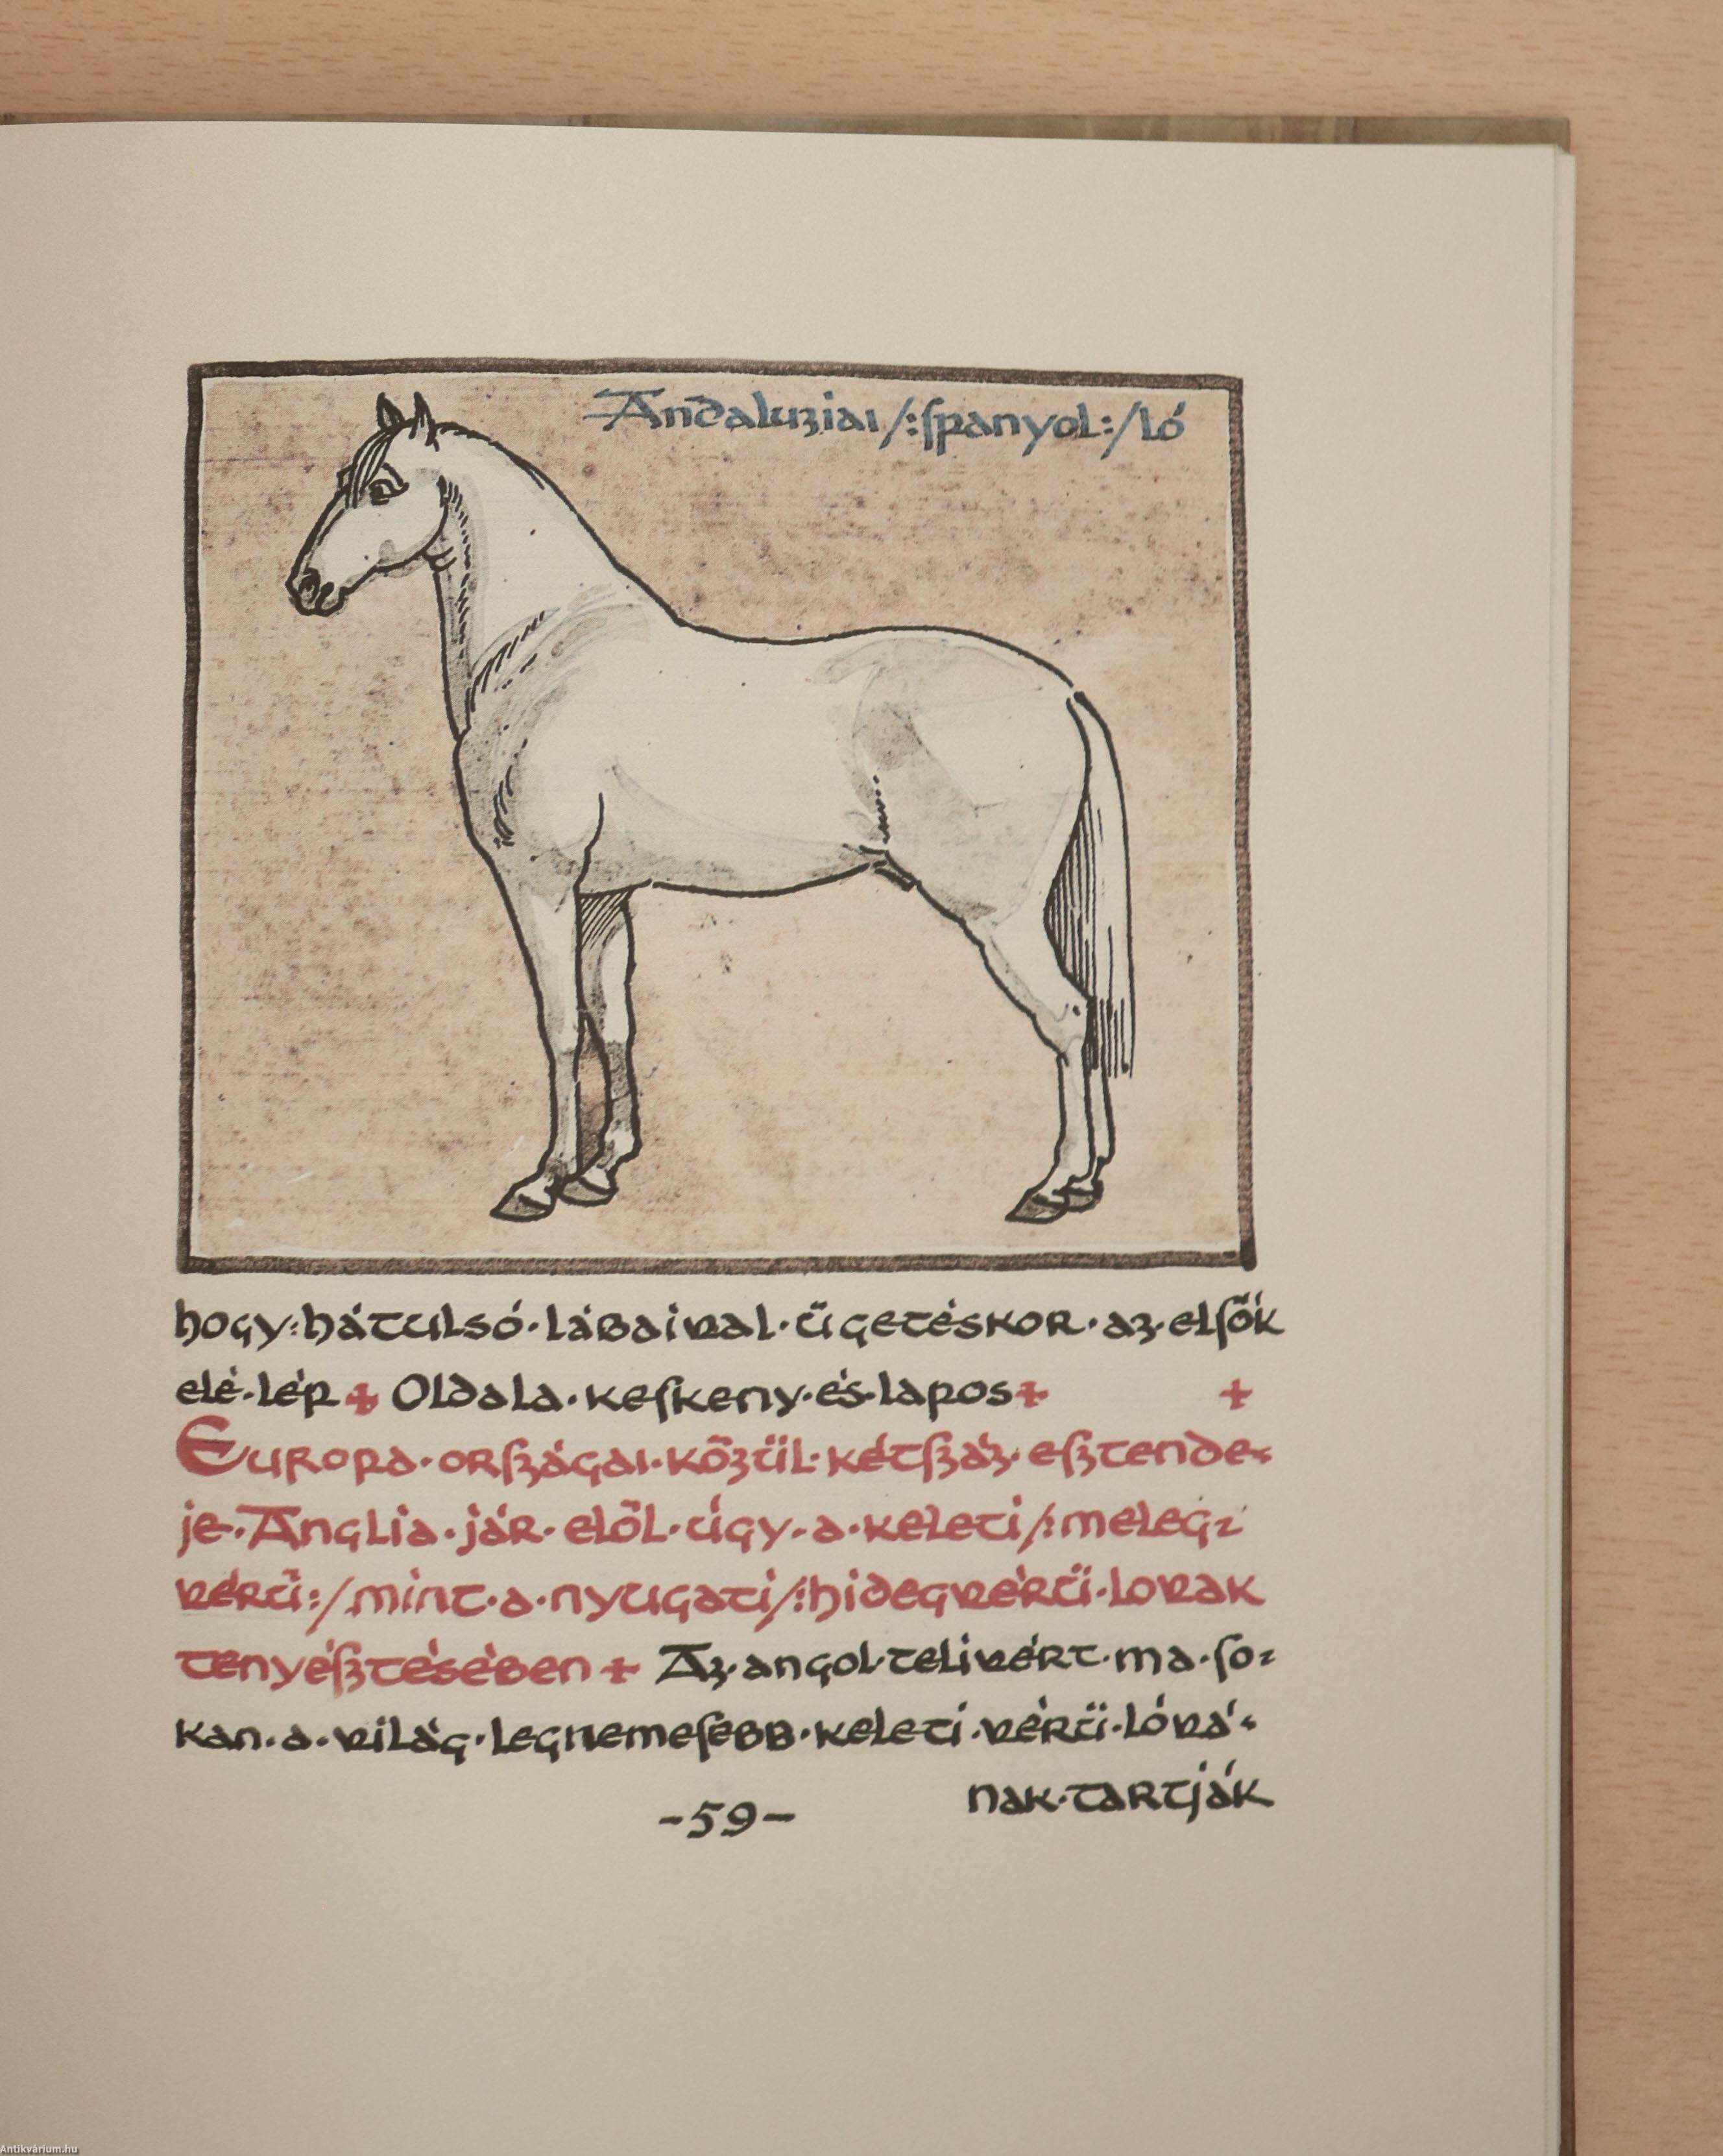 Andaluziai /:ſpanyol:/ ló
hogy:hátulsó·lábaival·ügetéskor·az·elſők
elé·lép + Oldala·keſkeny·és·lapos + +
Europa·orſzágai·közül·kétſzáz·eſztende-
je·Anglia·jár·elől·úgy·a·keleti/:meleg-
vérű:/mint·a·nyugati/:hidegvérű·lovak
tenyéſztésében + Az·angol·telivért·ma·ſo-
kan·a·világ·legnemeſebb·keleti·vérű·lová-
nak·tartják
-59-
Antikvárium.hu